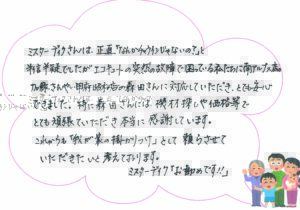 ミスターデイクさんは、正直「なんかチャラいんじゃないの?」と
半信半疑でしたが エコキュートの突然の故障で困っている私たちに南アルプス店の
加藤さんや甲府昭和店の森田さんに対応していただき、とても安心
できました。特に森田さんには、機材探しや価格等で
とても頑張っていただき本当に感謝しています。
これからも「我が家の掛かりつけ」として 頼らせて
いただきたいと考えております。
ミスターデイク「お勧めです!!」